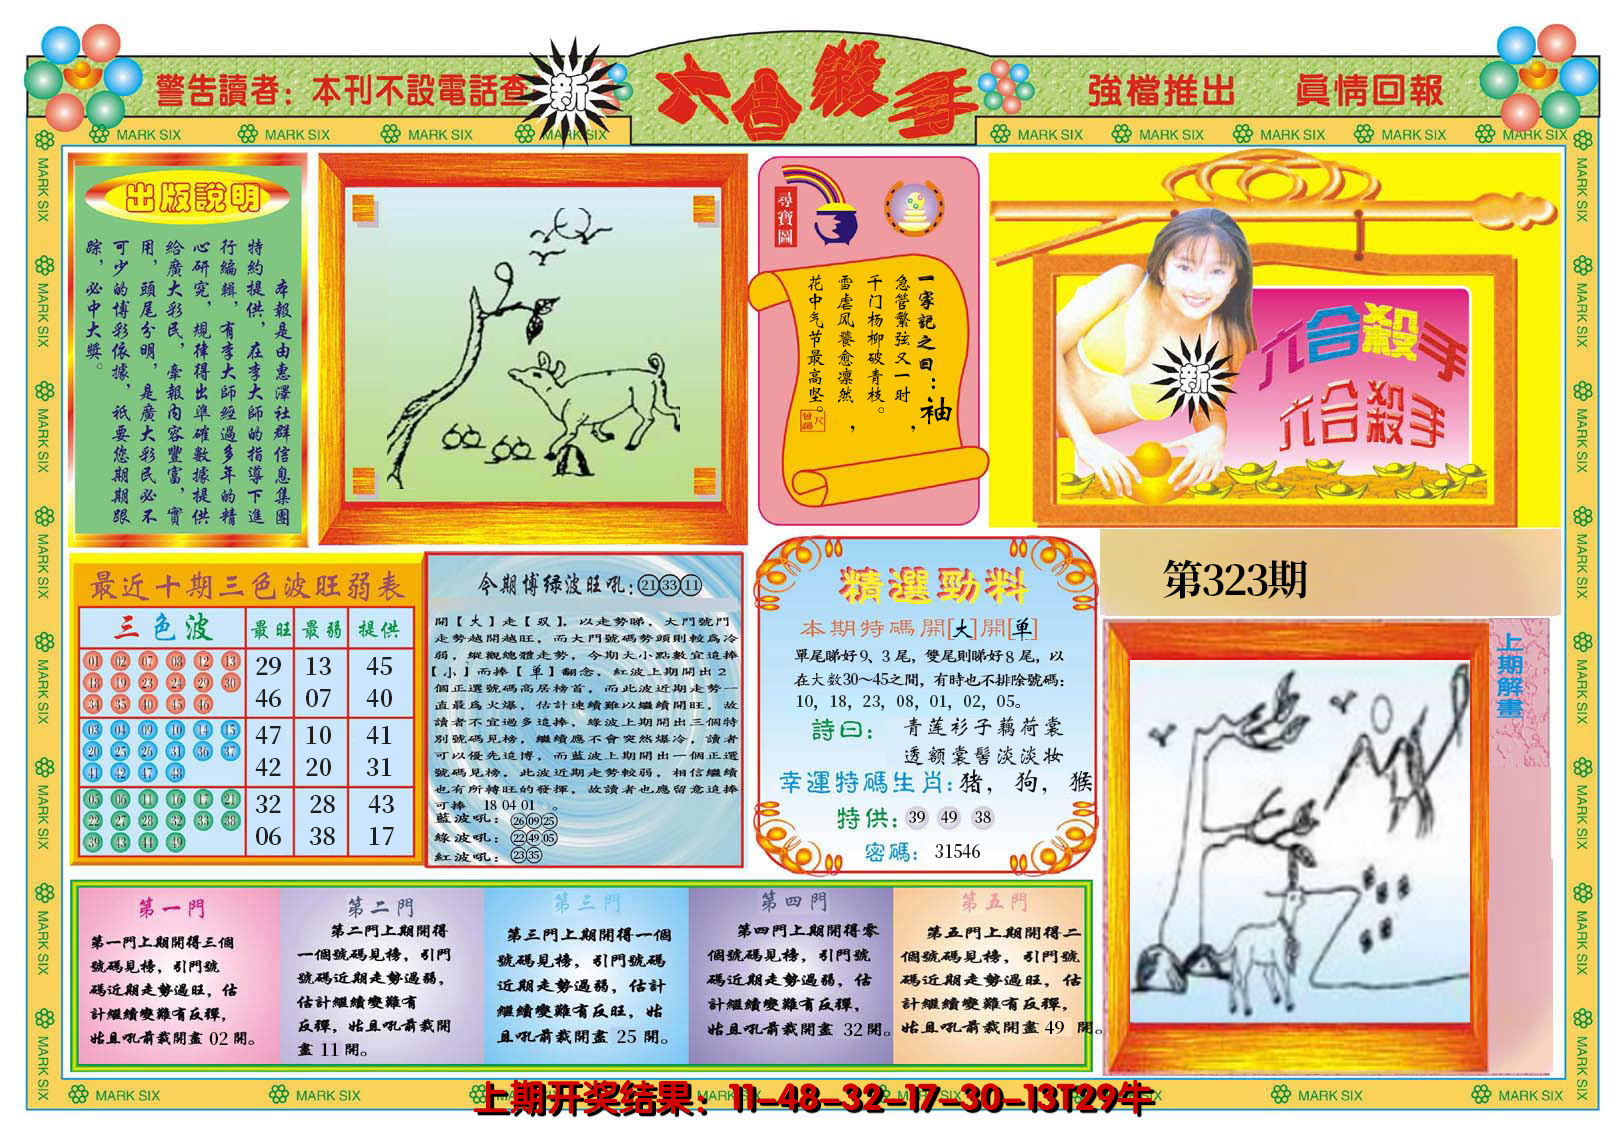 警告讀者：本刊不設電話查
新
六合殺手
強檔推出 眞情回報
MARK SIX MARK SIX MARK SIX MARK SIX MARK SIX MARK SIX MARK SIX MARK SIX MARK SIX
出版說明
本報是由惠澤社群信息集團
特約提供，在李大師的指導下進
行編輯，有李大師經過多年的精
心研究，規律得出準確數據提供
給廣大彩民，牽報內容豐富，實
用，頭尾分明，是廣大彩民必不
可少的博彩依據，祇要您期期跟
踪，必中大獎。
尋寶圖
一家記之曰：袖
急管繁弦又一时，
千门杨柳破青枝。
雪虐风饕愈凛然，
花中气节最高坚。
六合殺手
新
六合殺手
第323期
最近十期三色波旺弱表
三色波 最旺 最弱 提供
01 02 07 08 12 13
18 19 23 24 29 30
34 35 40 45 46
29 13 45
46 07 40
03 04 09 10 14 15
20 25 26 31 36 37
41 42 47 48
47 10 41
42 20 31
05 06 11 16 17 21
22 27 28 32 33 38
39 43 44 49
32 28 43
06 38 17
今期博绿波旺吼：21 33 11
開【大】走【双】，以走勢睇，大門號門
走勢越開越旺，而大門號碼勢頭則較爲冷
弱，縱觀總體走勢，今期大小點數宜追捧
【小】而捧【单】翻念，紅波上期開出2
個正選號碼高居榜首，而此波近期走勢一
直最爲火爆，估計連續難以繼續開旺，故
讀者不宜過多追捧，綠波上期開出三個特
別號碼見榜，繼續應不會突然爆冷，讀者
可以優先追博，而藍波上期開出一個正選
號碼見榜，此波近期走勢較弱，相信繼續
也有所轉旺的發揮，故讀者也應留意追捧
可捧 18 04 01 。
藍波吼：26 09 25
綠波吼：22 49 05
紅波吼：23 35
精選勁料
本期特碼開[大]開[单]
單尾睇好9、3尾，雙尾則睇好8尾，以
在大数30～45之間，有時也不排除號碼：
10，18，23，08，01，02，05。
詩曰： 青莲衫子藕荷裳
透额裳髻淡淡妆
幸運特碼生肖：猪，狗，猴
特供：39 49 38
密碼：31546
上期解畫
第一門
第一門上期開得三個
號碼見榜，引門號
碼近期走勢過旺，估
計繼續變難有反彈，
姑且吼前裁開畫 02 開。
第二門
第二門上期開得
一個號碼見榜，引門
號碼近期走勢過弱，
估計繼續變難有
反彈，姑且吼前裁開
畫 11 開。
第三門
第三門上期開得一個
號碼見榜，引門號碼
近期走勢過弱，估計
繼續變難有反旺，姑
且吼前裁開畫 25 開。
第四門
第四門上期開得零
個號碼見榜，引門號
碼近期走勢過弱，估
計繼續變難有反彈，
姑且吼前裁開畫 32 開。
第五門
第五門上期開得二
個號碼見榜，引門號
碼近期走勢過旺，估
計繼續變難有反彈，
姑且吼前裁開畫 49 開。
上期开奖结果：11-48-32-17-30-13T29牛
MARK SIX MARK SIX MARK SIX MARK SIX MARK SIX